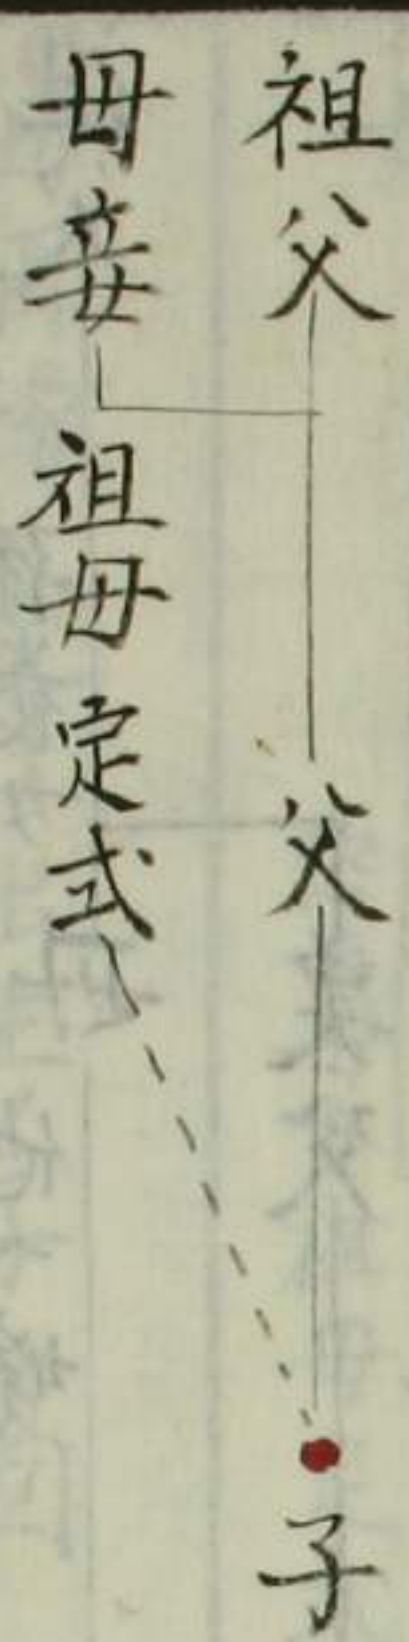 祖父 父 子
毋妾 祖毋定式